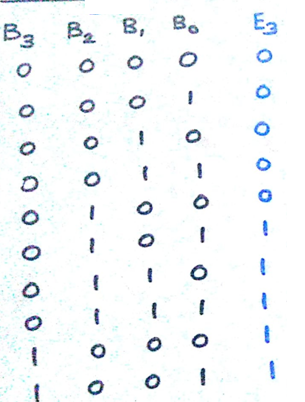 B₃ B₂ B₁ B₀ E₃
0 0 0 0 0
0 0 0 1 0
0 0 1 0 0
0 0 1 1 0
0 1 0 0 0
0 1 0 1 1
0 1 1 0 1
0 1 1 1 1
1 0 0 0 1
1 0 0 1 1